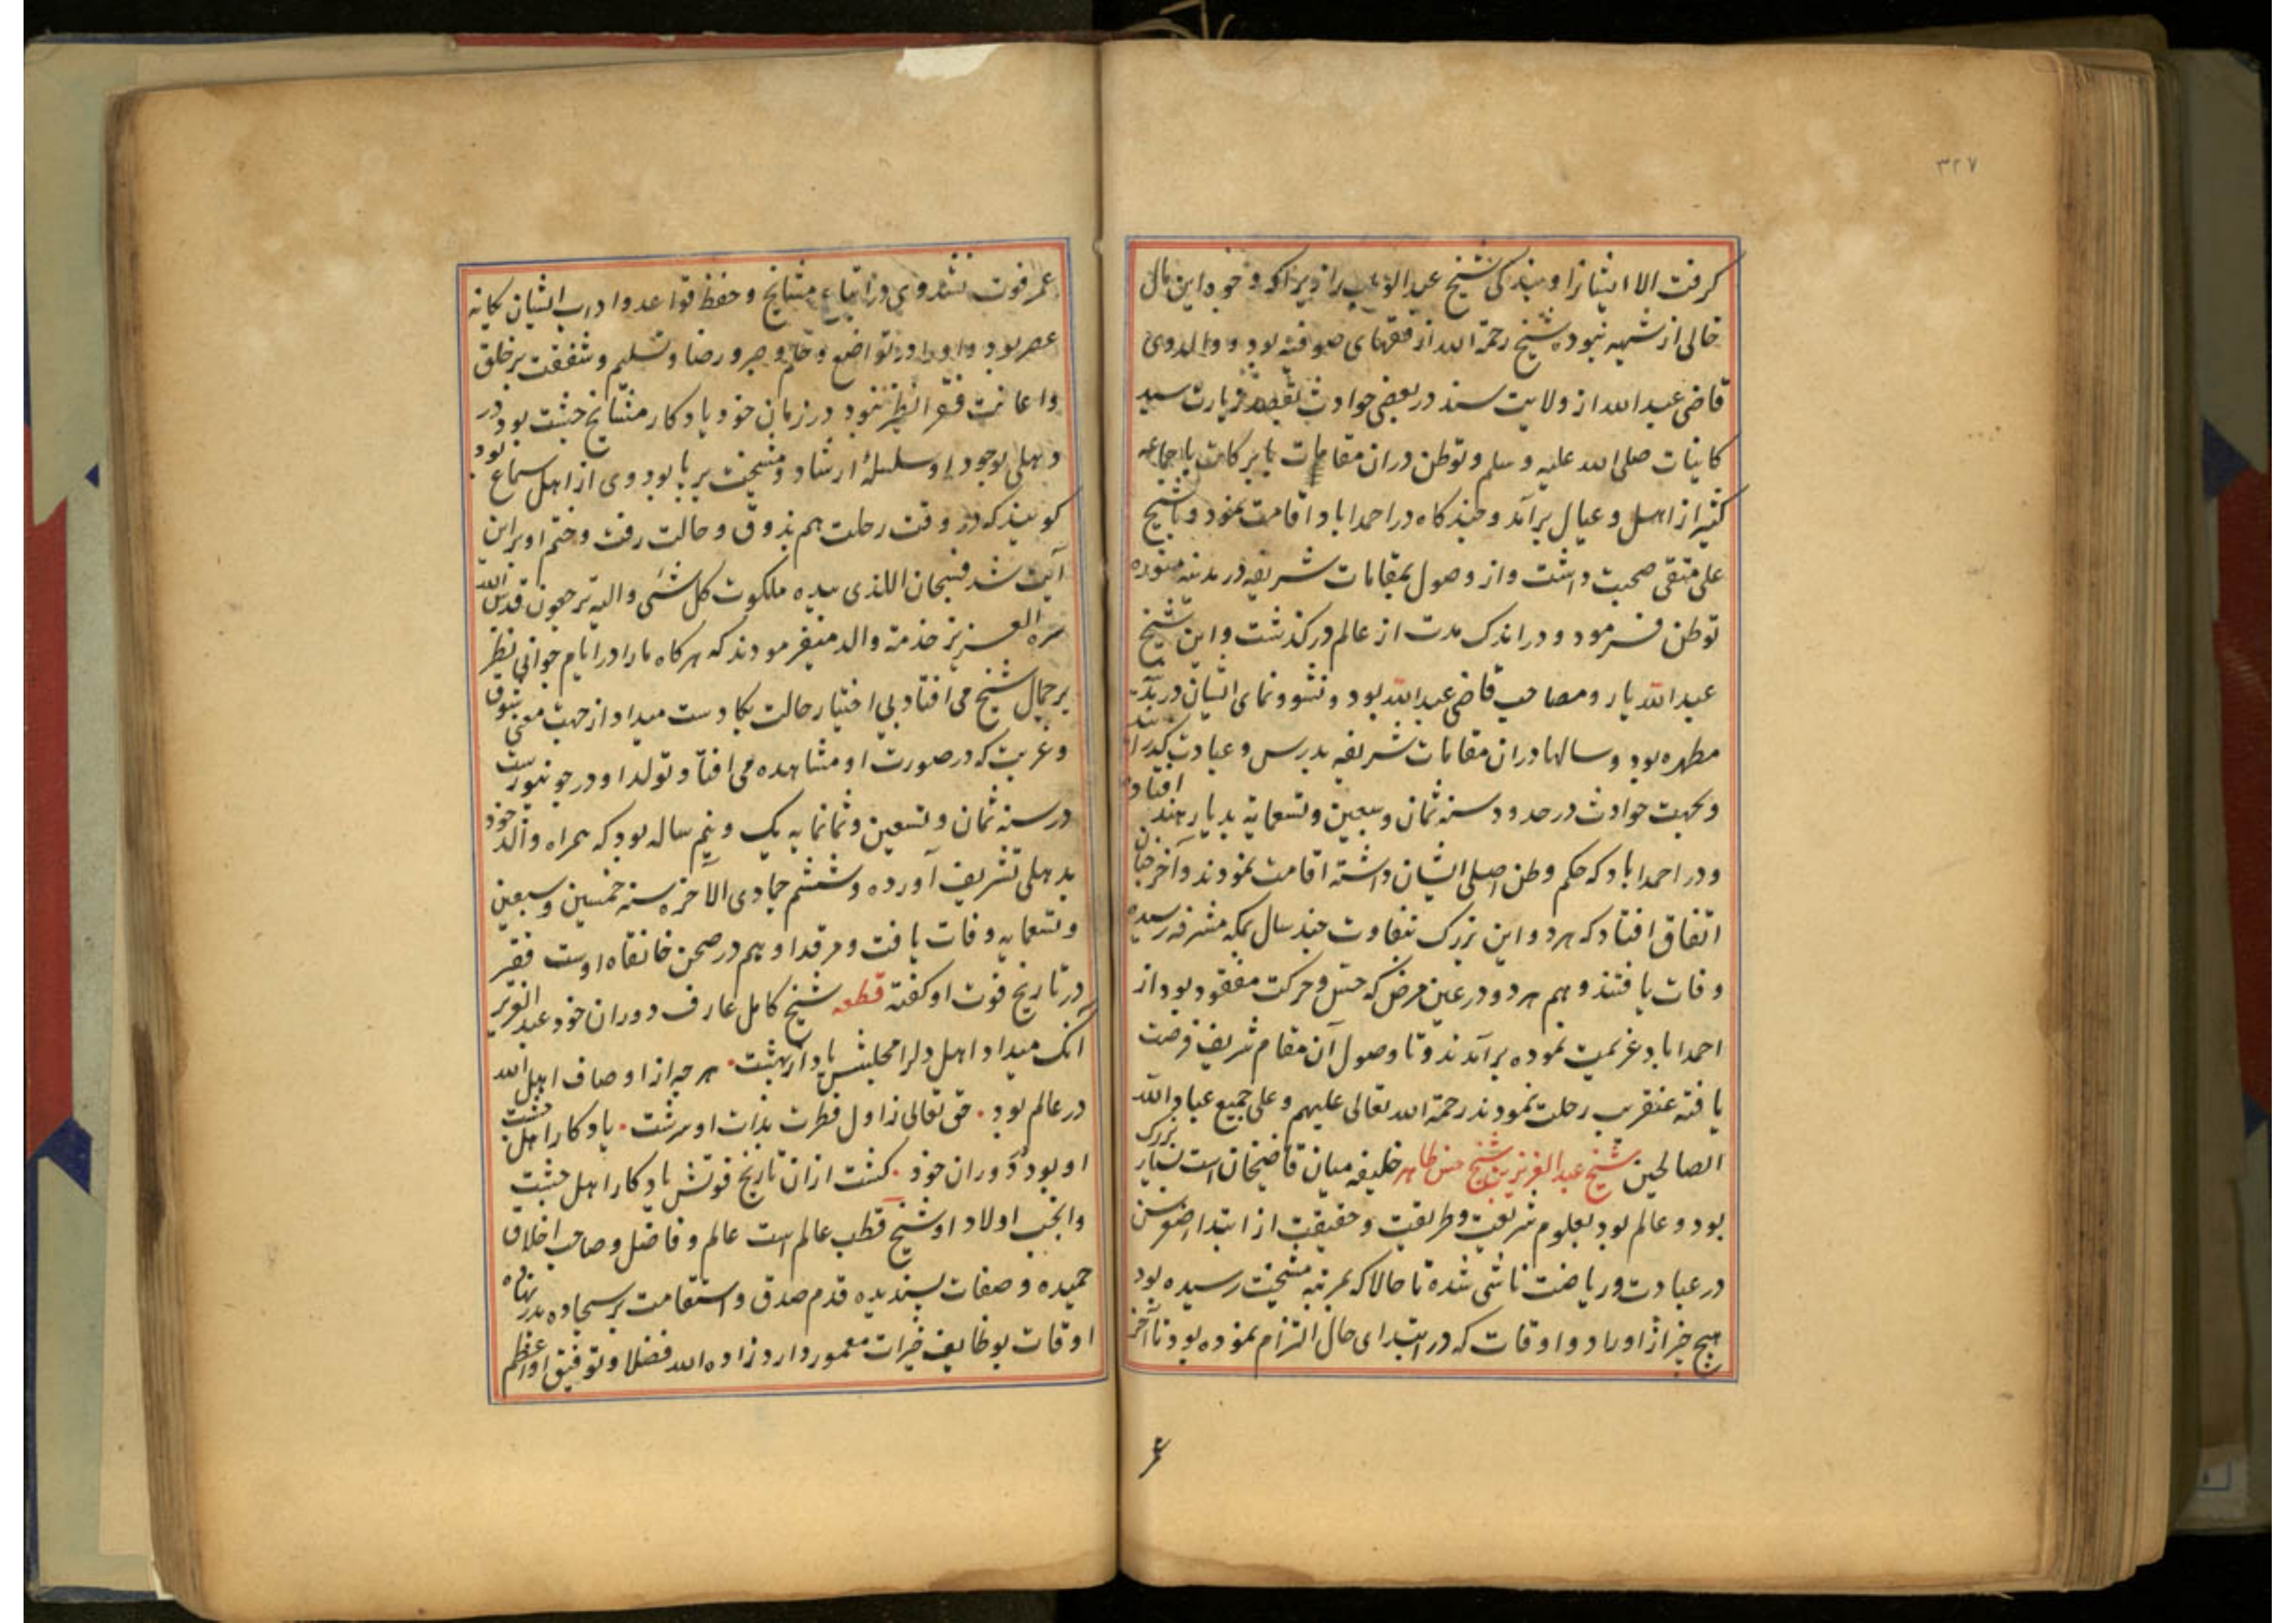 ۳۲۷
کرفت الا ایشانرا و بندکی شیخ عبدالوهاب را زیرا که وجوه این مال
خالی از شبهه نبوده شیخ رحمة الله از فقهای صوفیه بود و والد وی
قاضی عبدالله از ولایت سند در بعضی حوادث بقصد زیارت سید
کاینات صلی الله علیه و سلم و توطن دران مقامات با برکات با جماعه
کثیر از اهل و عیال برآمد و چند کاه در احمداباد اقامت نمود و با شیخ
علی متقی صحبت داشت و از وصول بمقامات شریفه در مدینه منوره
توطن فرمود و در اندک مدت از عالم درکذشت و این شیخ
عبدالله یار و مصاحب قاضی عبدالله بود و نشو و نمای ایشان در
مطهره بود و سالها دران مقامات شریفه بدرس و عبادت کذرانید
و بجهت حوادث در حدود سنه ثمان و سبعین و تسعمایة بدیار هند افتاد
و در احمداباد که حکم وطن اصلی ایشان داشته اقامت نمودند و آخر چنان
اتفاق افتاد که هر دو این بزرک بتفاوت چند سال بمکه مشرفه رسیده
وفات یافتند و هم هر دو در عین مرض که حس و حرکت مفقود بود از
احمداباد عزیمت نموده برآمدند و تا وصول آن مقام شریف فرصت
یافته عنقریب رحلت نمودند رحمة الله تعالی علیهم و علی جمیع عباد الله
الصالحین شیخ عبدالعزیز بن شیخ حسن طاهر خلیفه میان قاضیخان است بسیار بزرک
بود و عالم بود بعلوم شریعت و طریقت و حقیقت از ابتدا صغر سن
در عبادت و ریاضت ناشی شده تا حالا که بمرتبه مشیخت رسیده بود
هیچ چیز از اوراد و اوقات که در ابتدای حال التزام نموده بود تا آخر
عمر
عمر فوت نشد و وی در اتباع مشایخ و حفظ قواعد و اداب ایشان یکانه
عصر بود و او را در تواضع و حلم و صبر و رضا و تسلیم و شفقت بر خلق
و اعانت فقرا نظیر نبود در زمان خود یادکار مشایخ چشت بود در
دهلی بوجود او سلسلهٔ ارشاد و مشیخت برپا بود و وی از اهل سماع بود
کویند که در وقت رحلت هم بذوق و حالت رفت و ختم او بر این
آیت شد فسبحان اللذی بیده ملکوت کل شئی والیه ترجعون قدس الله
سره العزیز خدمة والد میفرمودند که هرکاه مارا در ایام جوانی نظر
بر جمال شیخ می افتاد بی اختیار حالت بکا دست میداد از جهت معنی شوق
و غربت که در صورت او مشاهده می افتاد و تولد او در جونپورست
در سنه ثمان و تسعین و ثمانمایه یک و نیم ساله بود که همراه والد خود
بدهلی تشریف آورده و ششم جمادی الآخره سنه خمسین و سبعین
و تسعمایه وفات یافت و مرقد او هم در صحن خانقاه اوست فقیر
در تاریخ فوت او کفته قطعه شیخ کامل عارف دوران خود عبدالعزیز
آنک میداد اهل دلرا مجلسش یاد از بهشت . هر چه از اوصاف اهل الله
در عالم بود . حق تعالی ز اول فطرت بذات او سرشت . یادکار اهل چشت
او بود دوران خود . کشت ازان تاریخ فوتش یادکار اهل چشت
و انجب اولاد او شیخ قطب عالم است عالم و فاضل و صاحب اخلاق
حمیده و صفات پسندیده قدم صدق و استقامت بر سجاده پدر نهاده
اوقات بوظایف خیرات معمور دارد زاده الله فضلا و توفیق او اعظم